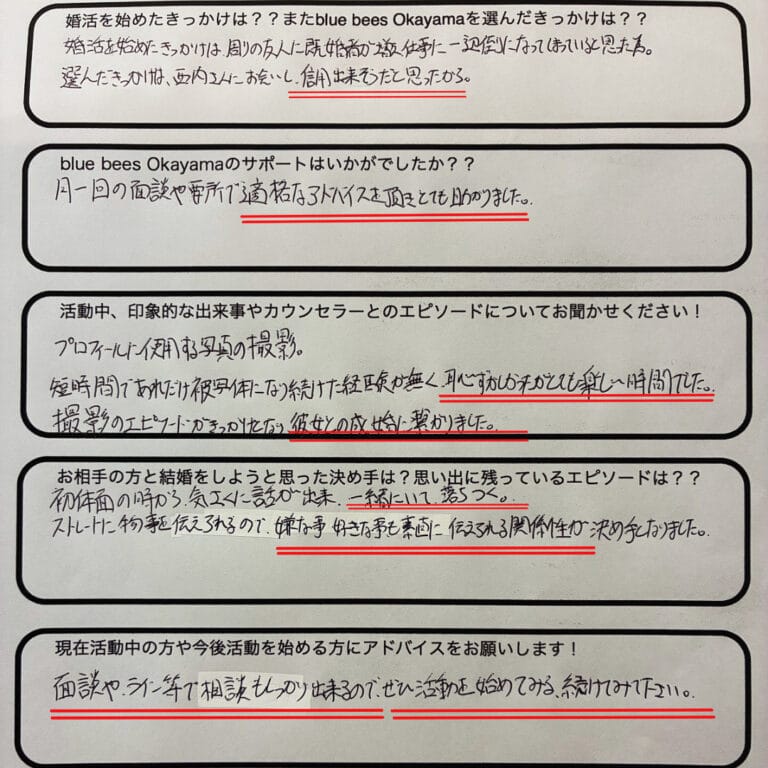 婚活を始めたきっかけは？？またblue bees Okayamaを選んだきっかけは？？
婚活を始めたきっかけは周りの友人に既婚者が増え仕事に一辺倒になってしまっていると思った為。
選んだきっかけは、西内さんにお会いし、信用出来そうだと思ったから。
blue bees Okayamaのサポートはいかがでしたか？？
月一回の面談や要所で適格なアドバイスを頂きとても助かりました。
活動中、印象的な出来事やカウンセラーとのエピソードについてお聞かせください！
プロフィールに使用する写真の撮影。
短時間であれだけ被写体になり続けた経験が無く、恥ずかしかったがとても楽しい時間でした。
撮影のエピソードがきっかけとなり彼女との成婚に繋がりました。
お相手の方と結婚をしようと思った決め手は？思い出に残っているエピソードは？？
初体面の時から、気さくに話が出来、一緒にいて、落ちつく。
ストレートに物事を伝えられるので、嫌な事好きな事も素直に伝えられる関係性が決め手となりました。
現在活動中の方や今後活動を始める方にアドバイスをお願いします！
面談や、ライン等で相談もしっかり出来るのでぜひ活動を始めてみる、続けてみて下さい。